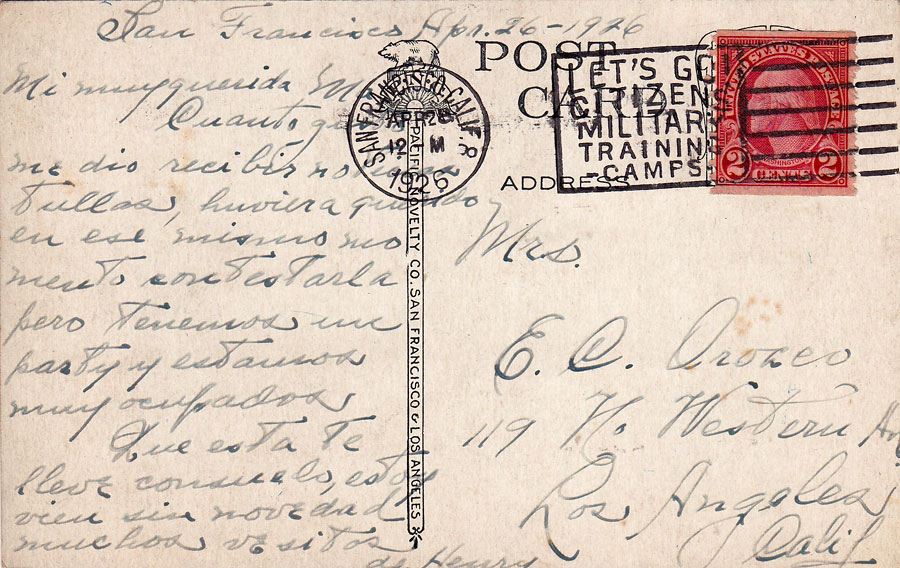 San Francisco Apr. 26-1926
Mi muy querida
Cuanto
me dio recibir
tullas, huviera querido
en ese mismo mo
mento contestarla
pero tenemos un
party y estamos
muy ocupados
Que esta te
lleve consuelo, estoy
vien sin novedad
muchos vesitos
de Henry
SAN FRANCISCO, CALIF.
APR 26
12 M
1926
PACIFIC NOVELTY CO. SAN FRANCISCO & LOS ANGELES
POST CARD
ADDRESS
LET'S GO!
CITIZENS
MILITARY
TRAINING
-CAMPS-
UNITED STATES POSTAGE
WASHINGTON
2 CENTS 2
Mrs.
E. C. Orozco
119 N. Western Av
Los Angeles
Calif